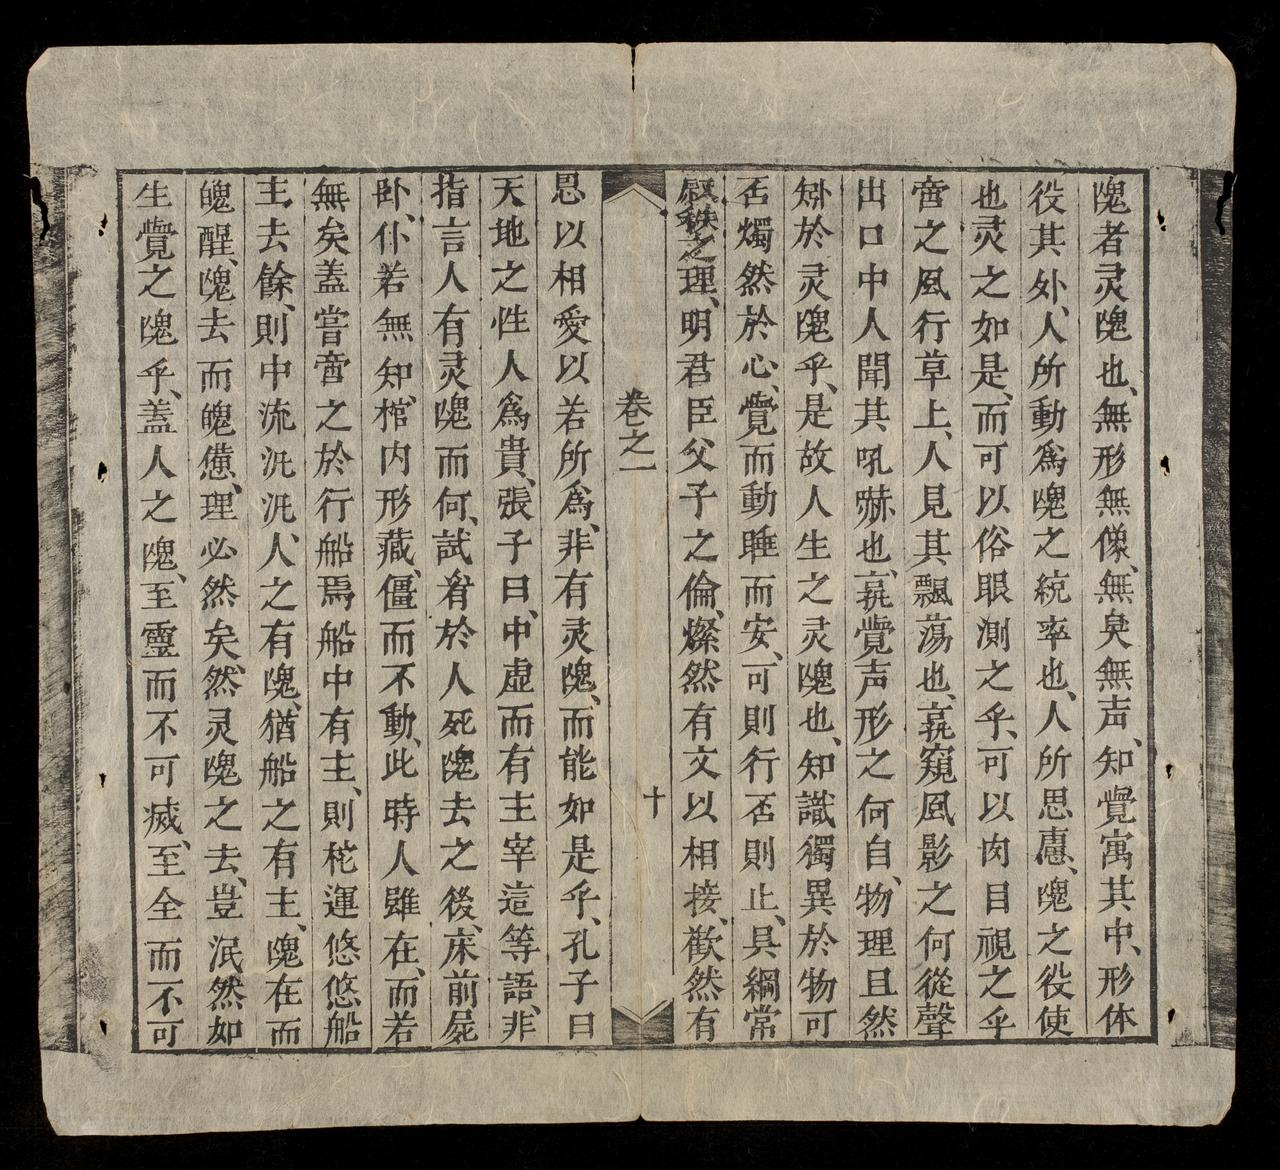 隗者灵隗也、無形無像、無臭無声、知覺寓其中、形体
役其外、人所動為隗之統率也、人所思慮、隗之役使
也灵之如是、而可以俗眼測之乎、可以肉目視之乎
啻之風行草上、人見其飄荡也、孰窺風影之何從聲
出口中人聞其吼嚇也、孰覺声形之何自、物理且然
矧於灵隗乎、是故人生之灵隗也、知識獨異於物可
否燭然於心、覺而動睡而安、可則行否則止、具綱常
叙秩之理、明君臣父子之倫、燦然有文以相接、歡然有
卷之一 十
恩以相愛以若所為、非有灵隗、而能如是乎、孔子曰
天地之性人為貴、張子曰、中虛而有主宰這等語、非
指言人有灵隗而何、試看於人死隗去之後、床前屍
卧、仆若無知、棺内形藏、僵而不動、此時人雖在、而若
無矣盖嘗啻之於行船焉船中有主、則柁運悠悠船
主去餘、則中流汎汎、人之有隗、猶船之有主、隗在而
醜醒、隗去而醜憊、理必然矣、然灵隗之去、豈泯然如
生覺之隗乎、盖人之隗、至靈而不可滅、至全而不可